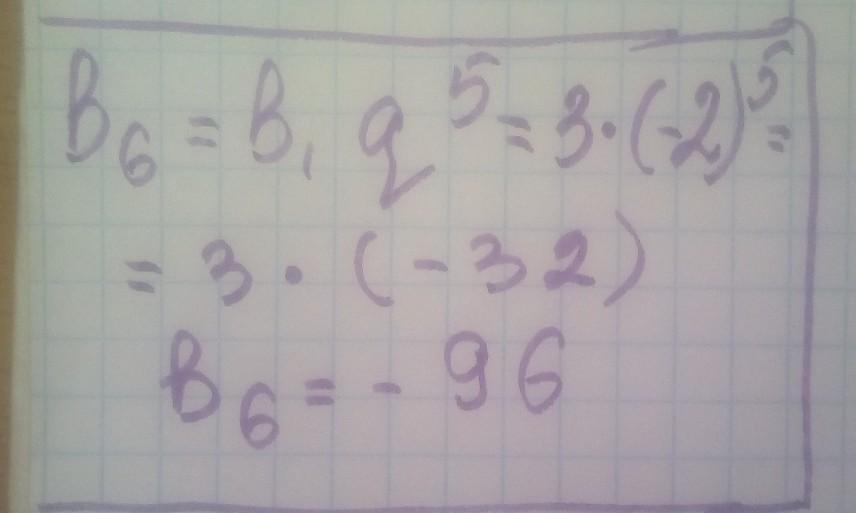 B₆ = B₁ q⁵ = 3 · (-2)⁵ =
= 3 · (-32)
B₆ = - 96